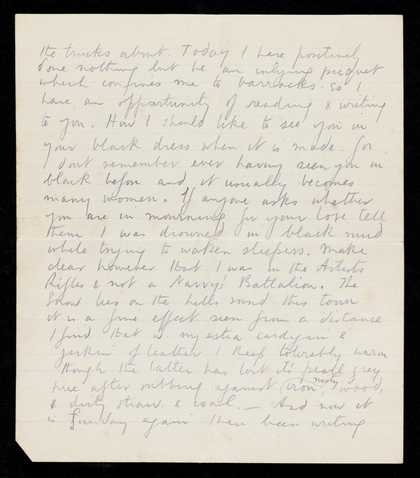 the trucks about. Today I have positively
done nothing but be an inlying picquet
which confines me to barracks. So I
have an opportunity of reading & writing
to you. How I should like to see you in
your black dress when it is made for
I dont remember ever having seen you in
black before and it usually becomes
many women. If anyone asks whether
you are in mourning for your love tell
them I was drowned in black mud
while trying to waken sleepers. Make
clear however that I was in the Artists
Rifles & not a Navvys Battalion. The
snow lies on the hills round this town
it is a fine effect seen from a distance
I find that in my extra cardigan &
jerkin of leather I keep tolerably warm
though the latter has lost its pearl grey
hue after rubbing against iron, wood,
rusty
& dirty straw & coal. — And now it
is Sunday again I have been writing